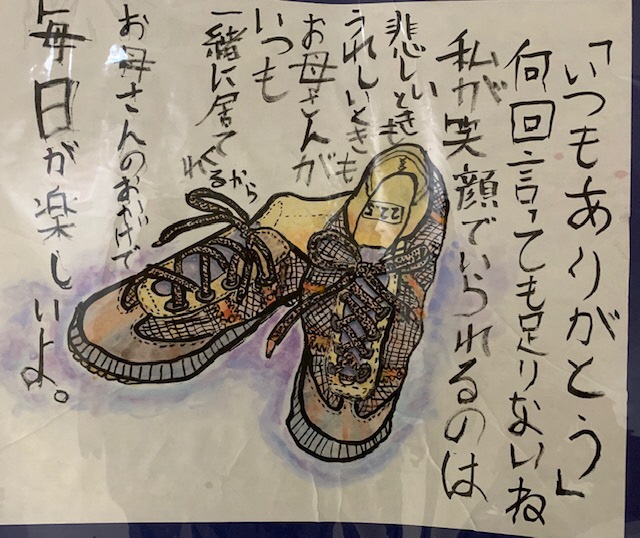 「いつもありがとう」
何回言っても足りないね
私が笑顔でいられるのは
悲しいときも
うれしいときも
お母さんが
いつも
一緒に居て
くれるから
お母さんのおかげで
毎日が楽しいよ。
22.5